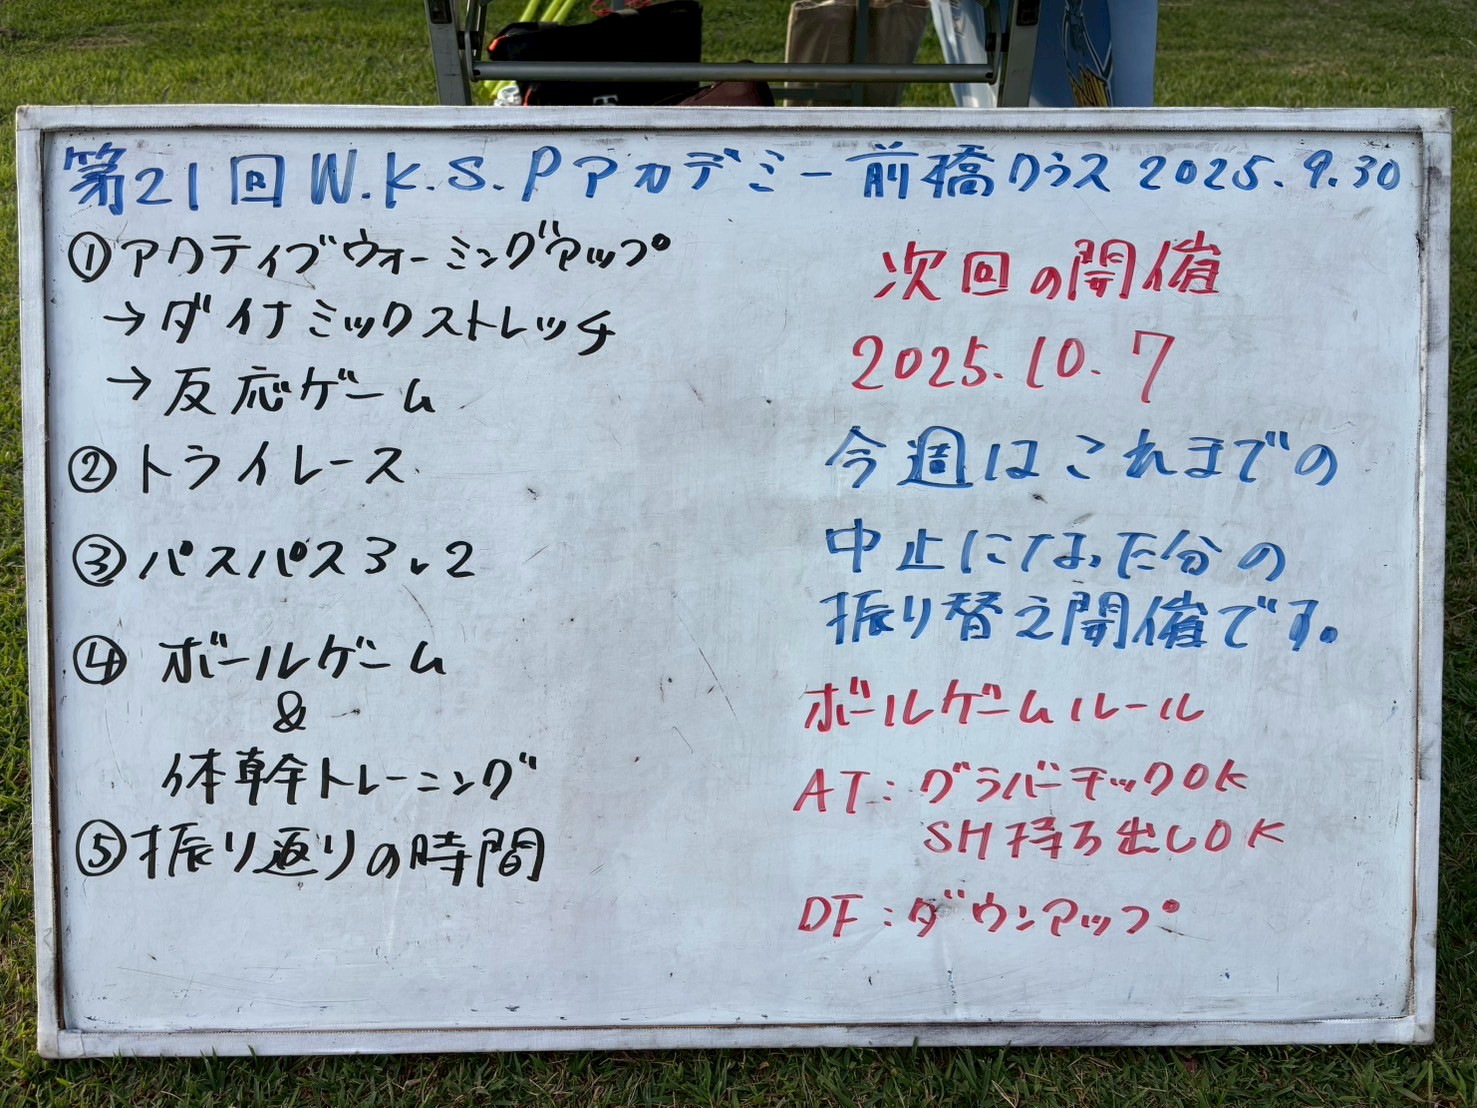 第21回 W.K.S.Pアカデミー前橋クラス 2025.9.30
①アクティブウォーミングアップ
→ダイナミックストレッチ
→反応ゲーム
②トライレース
③パスパス3v2
④ボールゲーム
&
体幹トレーニング
⑤振り返りの時間
次回の開催
2025.10.7
今週はこれまでの
中止になった分の
振り替え開催です。
ボールゲームルール
AT:グラバーチックOK
SH持ち出しOK
DF:ダウンアップ